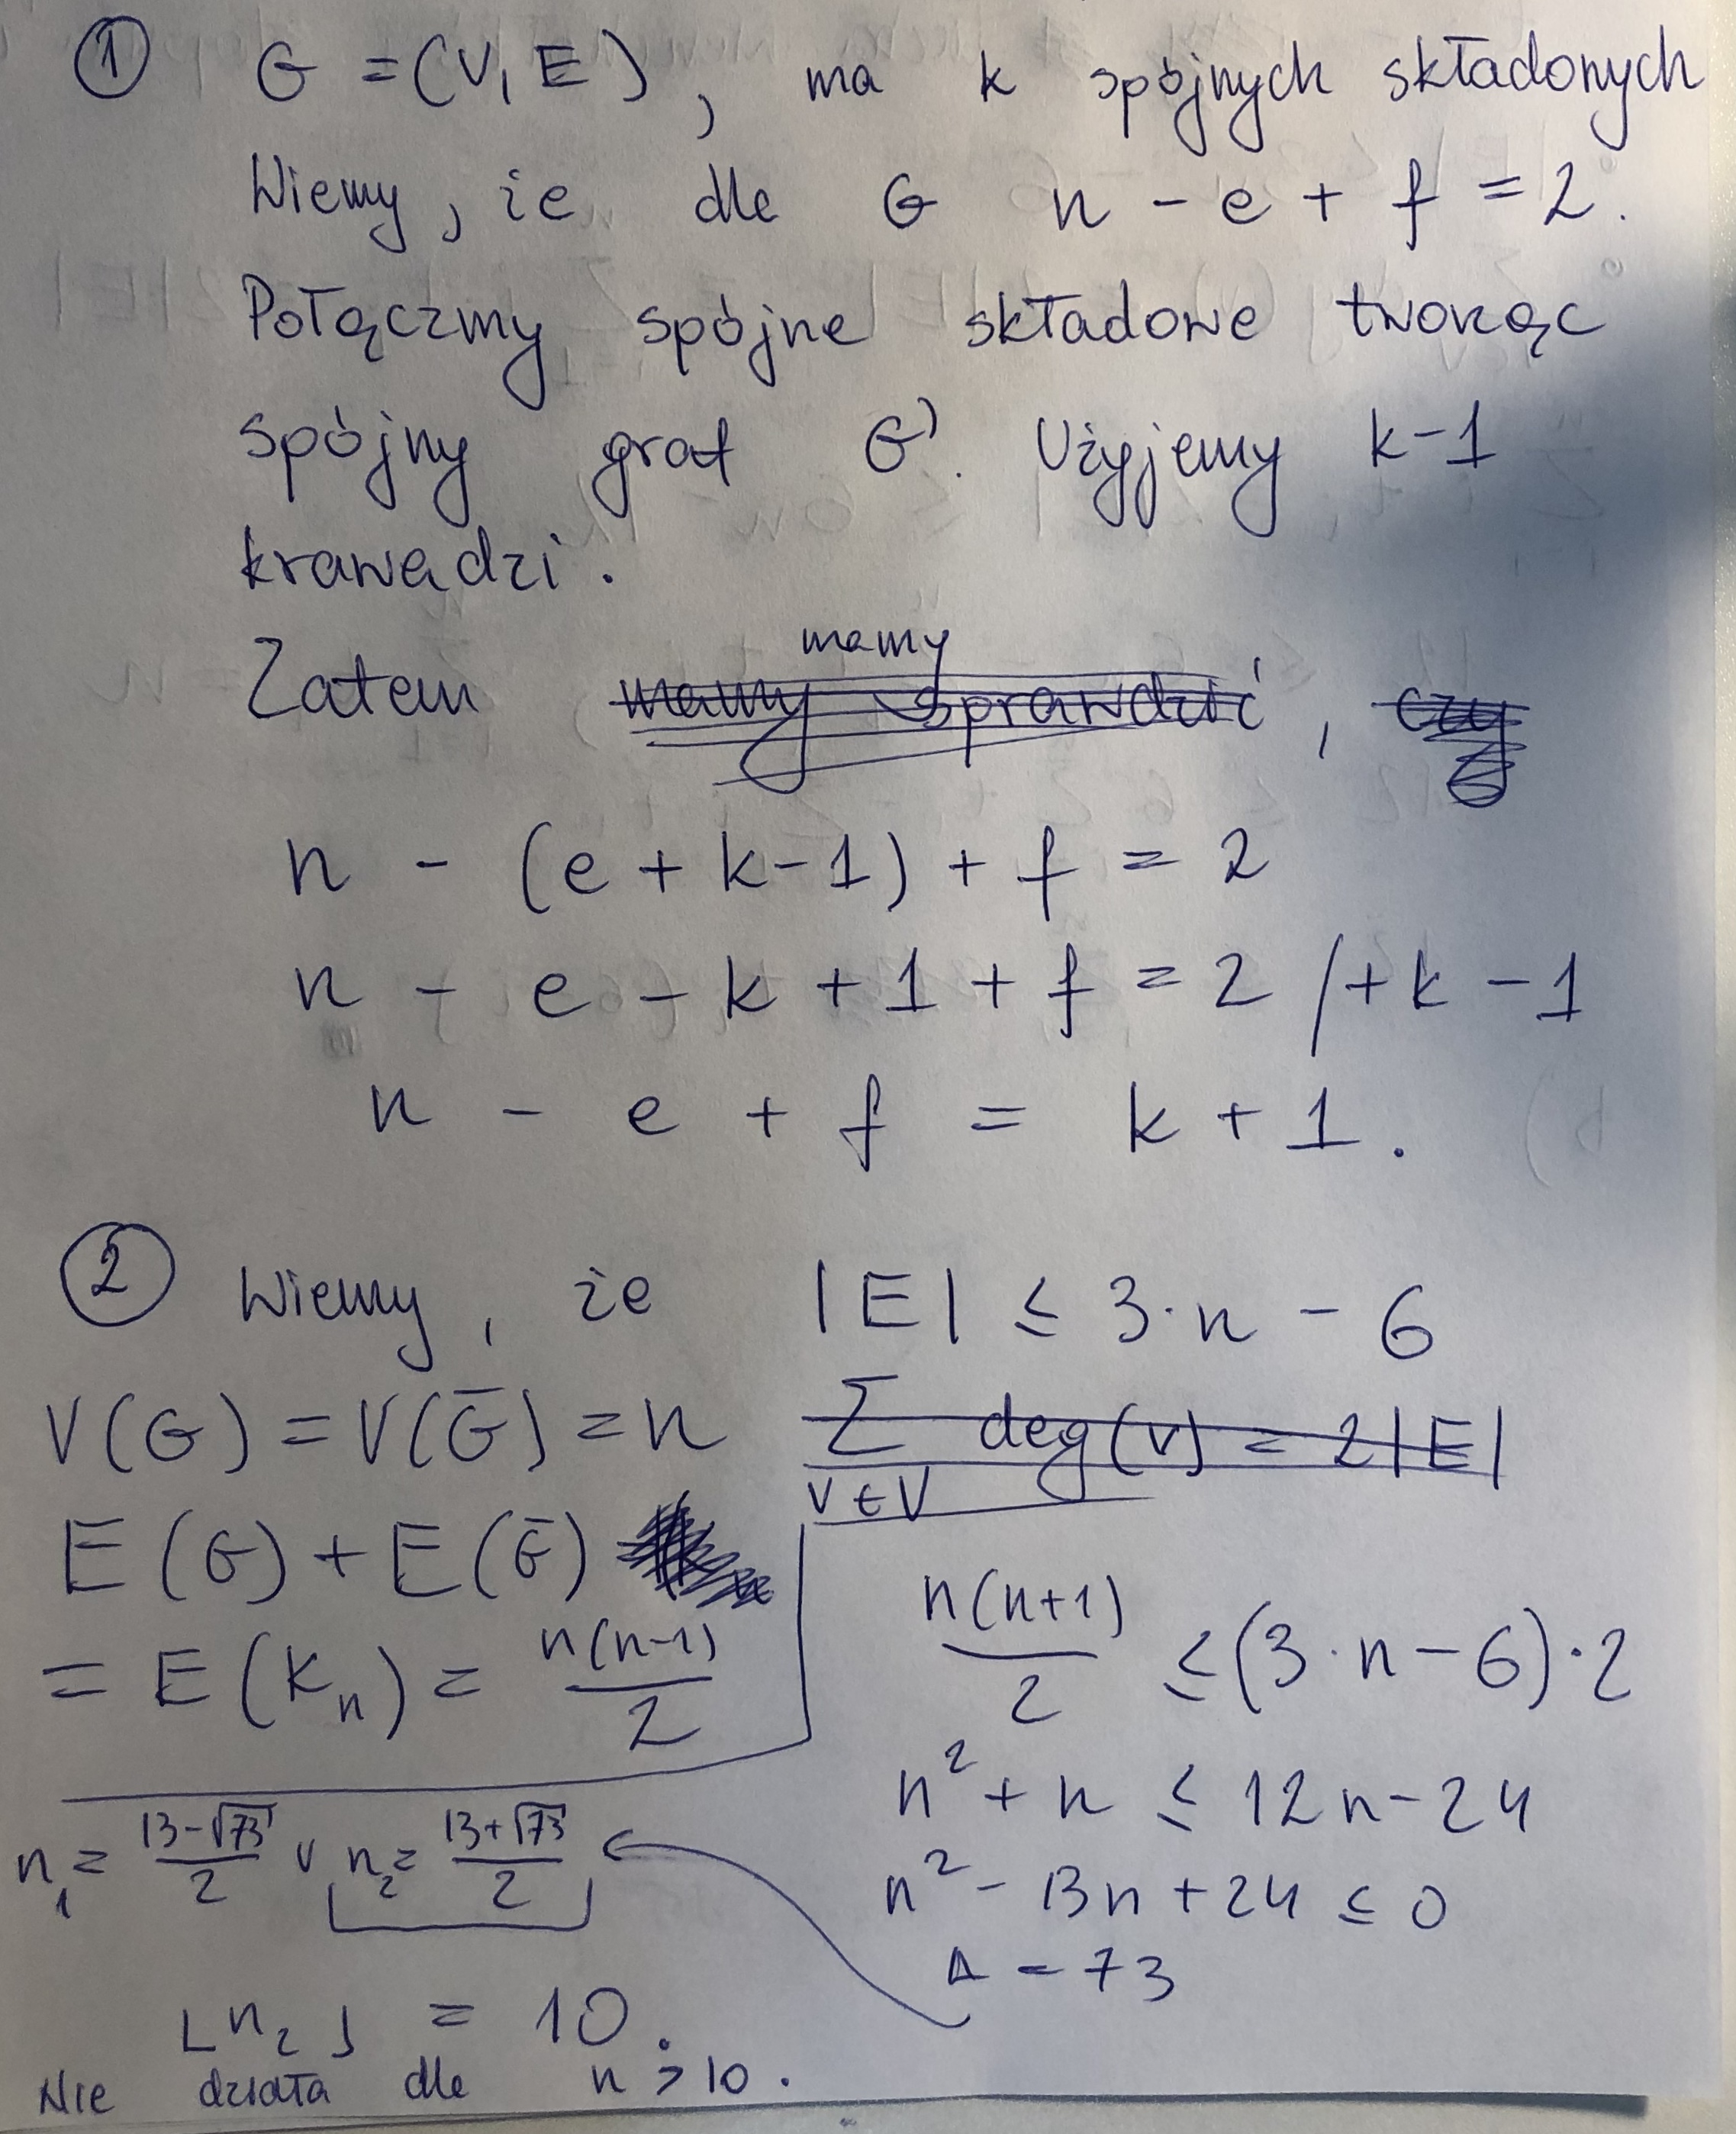 ① G = (V, E), ma k spójnych składonych
Wiemy, że dle G n - e + f = 2.
Połączmy spójne składowe tworząc
spójny graf G'. Użyjemy k-1
krawędzi.
mamy
Zatem mamy sprawdzić, czy
n - (e + k - 1) + f = 2
n - e - k + 1 + f = 2 / + k - 1
n - e + f = k + 1.
② Wiemy, że |E| ≤ 3·n - 6
V(G) = V(Ḡ) = n
E(G) + E(Ḡ)
= E(Kₙ) = n(n-1)/2
∑ deg(v) = 2|E|
v∈V
n(n+1)/2 ≤ (3·n - 6)·2
n² + n ≤ 12n - 24
n² - 13n + 24 ≤ 0
Δ = 73
n₁ = (13-√73)/2 ∨ n₂ = (13+√73)/2
⌊n₂⌋ = 10.
Nie działa dle n > 10.